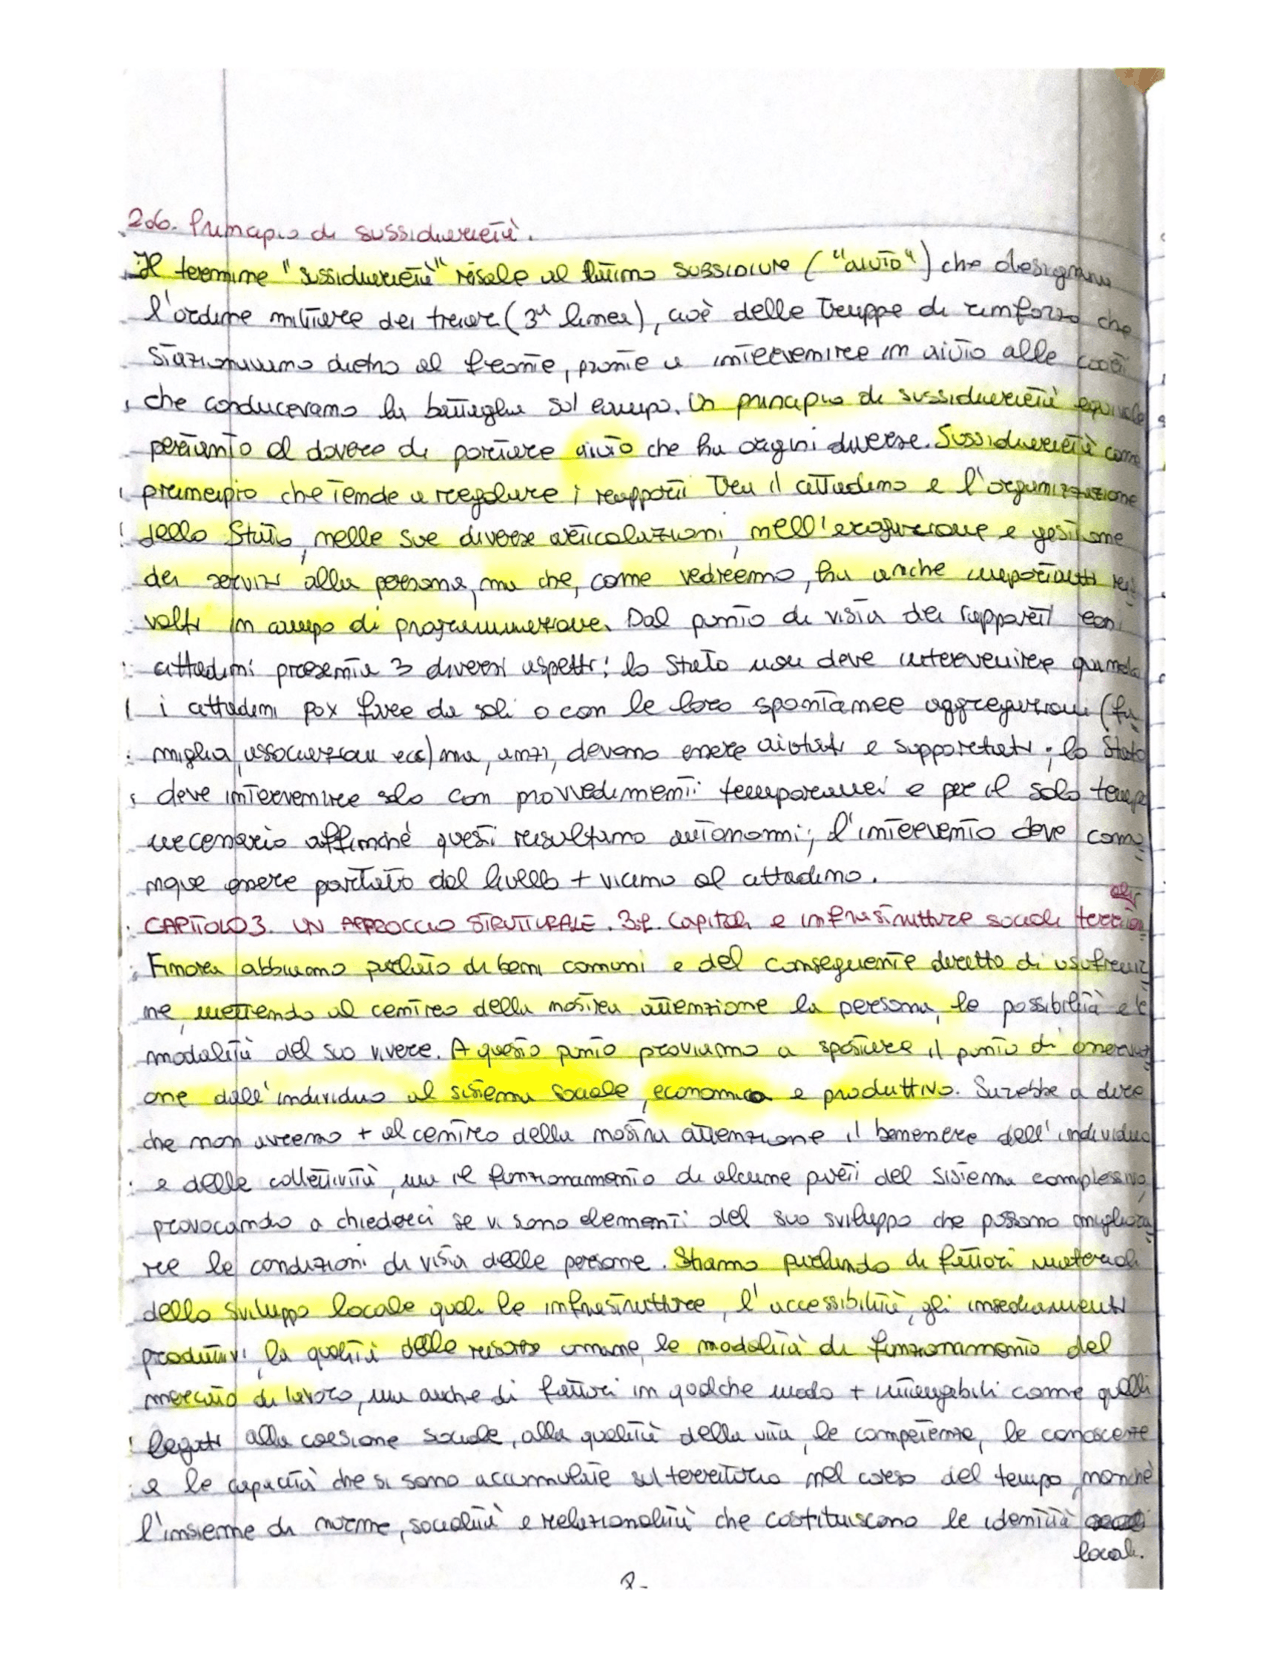 2.6. Principio di sussidiarietà.
Il termine "sussidiarietà" risale al latino SUBSIDIUM ("aiuto") che designava
l'ordine militare dei triari (3ª linea), cioè delle truppe di rinforzo che
stazionavano dietro al fronte, pronte a intervenire in aiuto alle coorti
che conducevano la battaglia sul campo. Un principio di sussidiarietà equivale
pertanto al dovere di portare aiuto che ha origini diverse. Sussidiarietà come
principio che tende a regolare i rapporti tra il cittadino e l'organizzazione
dello Stato, nelle sue diverse articolazioni, nell'erogazione e gestione
dei servizi alla persona, ma che, come vedremo, ha anche importanti ri
volti in campo di programmazione. Dal punto di vista dei rapporti con i
cittadini presenta 3 diversi aspetti: lo Stato non deve intervenire quando
i cittadini pox fare da soli o con le loro spontanee aggregazioni (fa
miglia, associazioni ecc) ma, anzi, devono essere aiutati e supportati; lo Stato
deve intervenire solo con provvedimenti temporanei e per il solo tempo
necessario affinché questi risultano autonomi; l'intervento deve comu
nque essere portato dal livello + vicino al cittadino.
CAPITOLO 3. UN APPROCCIO STRUTTURALE. 3.1. Capitali e infrastrutture sociali territori
ali
Finora abbiamo parlato di beni comuni e del conseguente diretto di usufruir
ne, mettendo al centro della nostra attenzione la persona, le possibilità e le
modalità del suo vivere. A questo punto proviamo a spostare il punto di osservazi
one dall'individuo al sistema sociale, economico e produttivo. Sarebbe a dire
che non avremo + al centro della nostra attenzione il benessere dell'individuo
e delle collettività, ma il funzionamento di alcune parti del sistema complessivo,
provocando a chiederci se vi sono elementi del suo sviluppo che possono migliora
re le condizioni di vista delle persone. Stiamo parlando di fattori materiali
dello sviluppo locale quali le infrastrutture, l'accessibilità, gli insediamenti
produttivi, la qualità delle risorse umane, le modalità di funzionamento del
mercato di lavoro, ma anche di fattori in qualche modo + intangibili come quelli
legati alla coesione sociale, alla qualità della vita, le competenze, le conoscenze
e le capacità che si sono accumulate sul territorio nel corso del tempo, nonché
l'insieme di norme, socialità e relazionalità che costituiscono le identità
locali.
8-